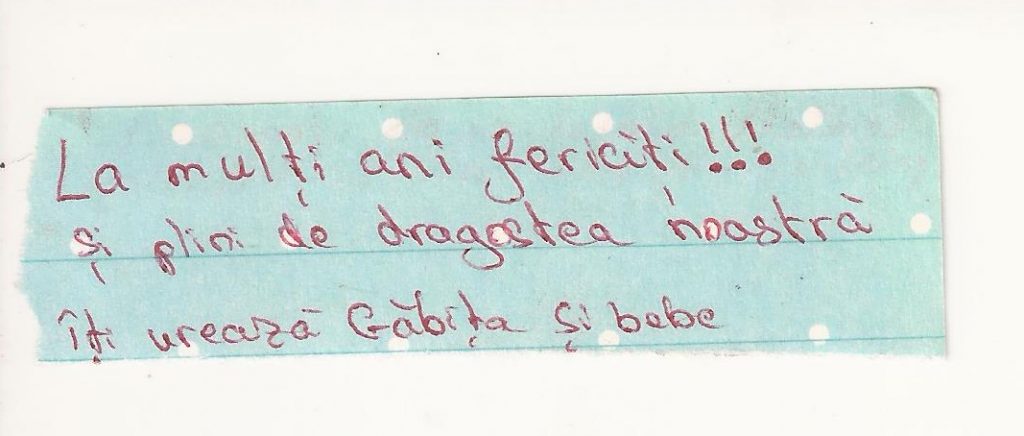 La mulți ani fericiti!!!
și plini de dragostea noastră
îți urează Găbița și bebe